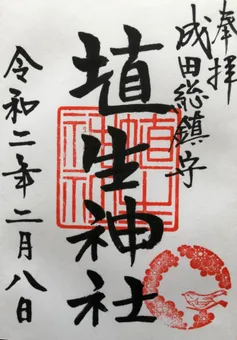 奉拝
成田総鎮守
埴生神社
令和二年二月八日
埴生神社